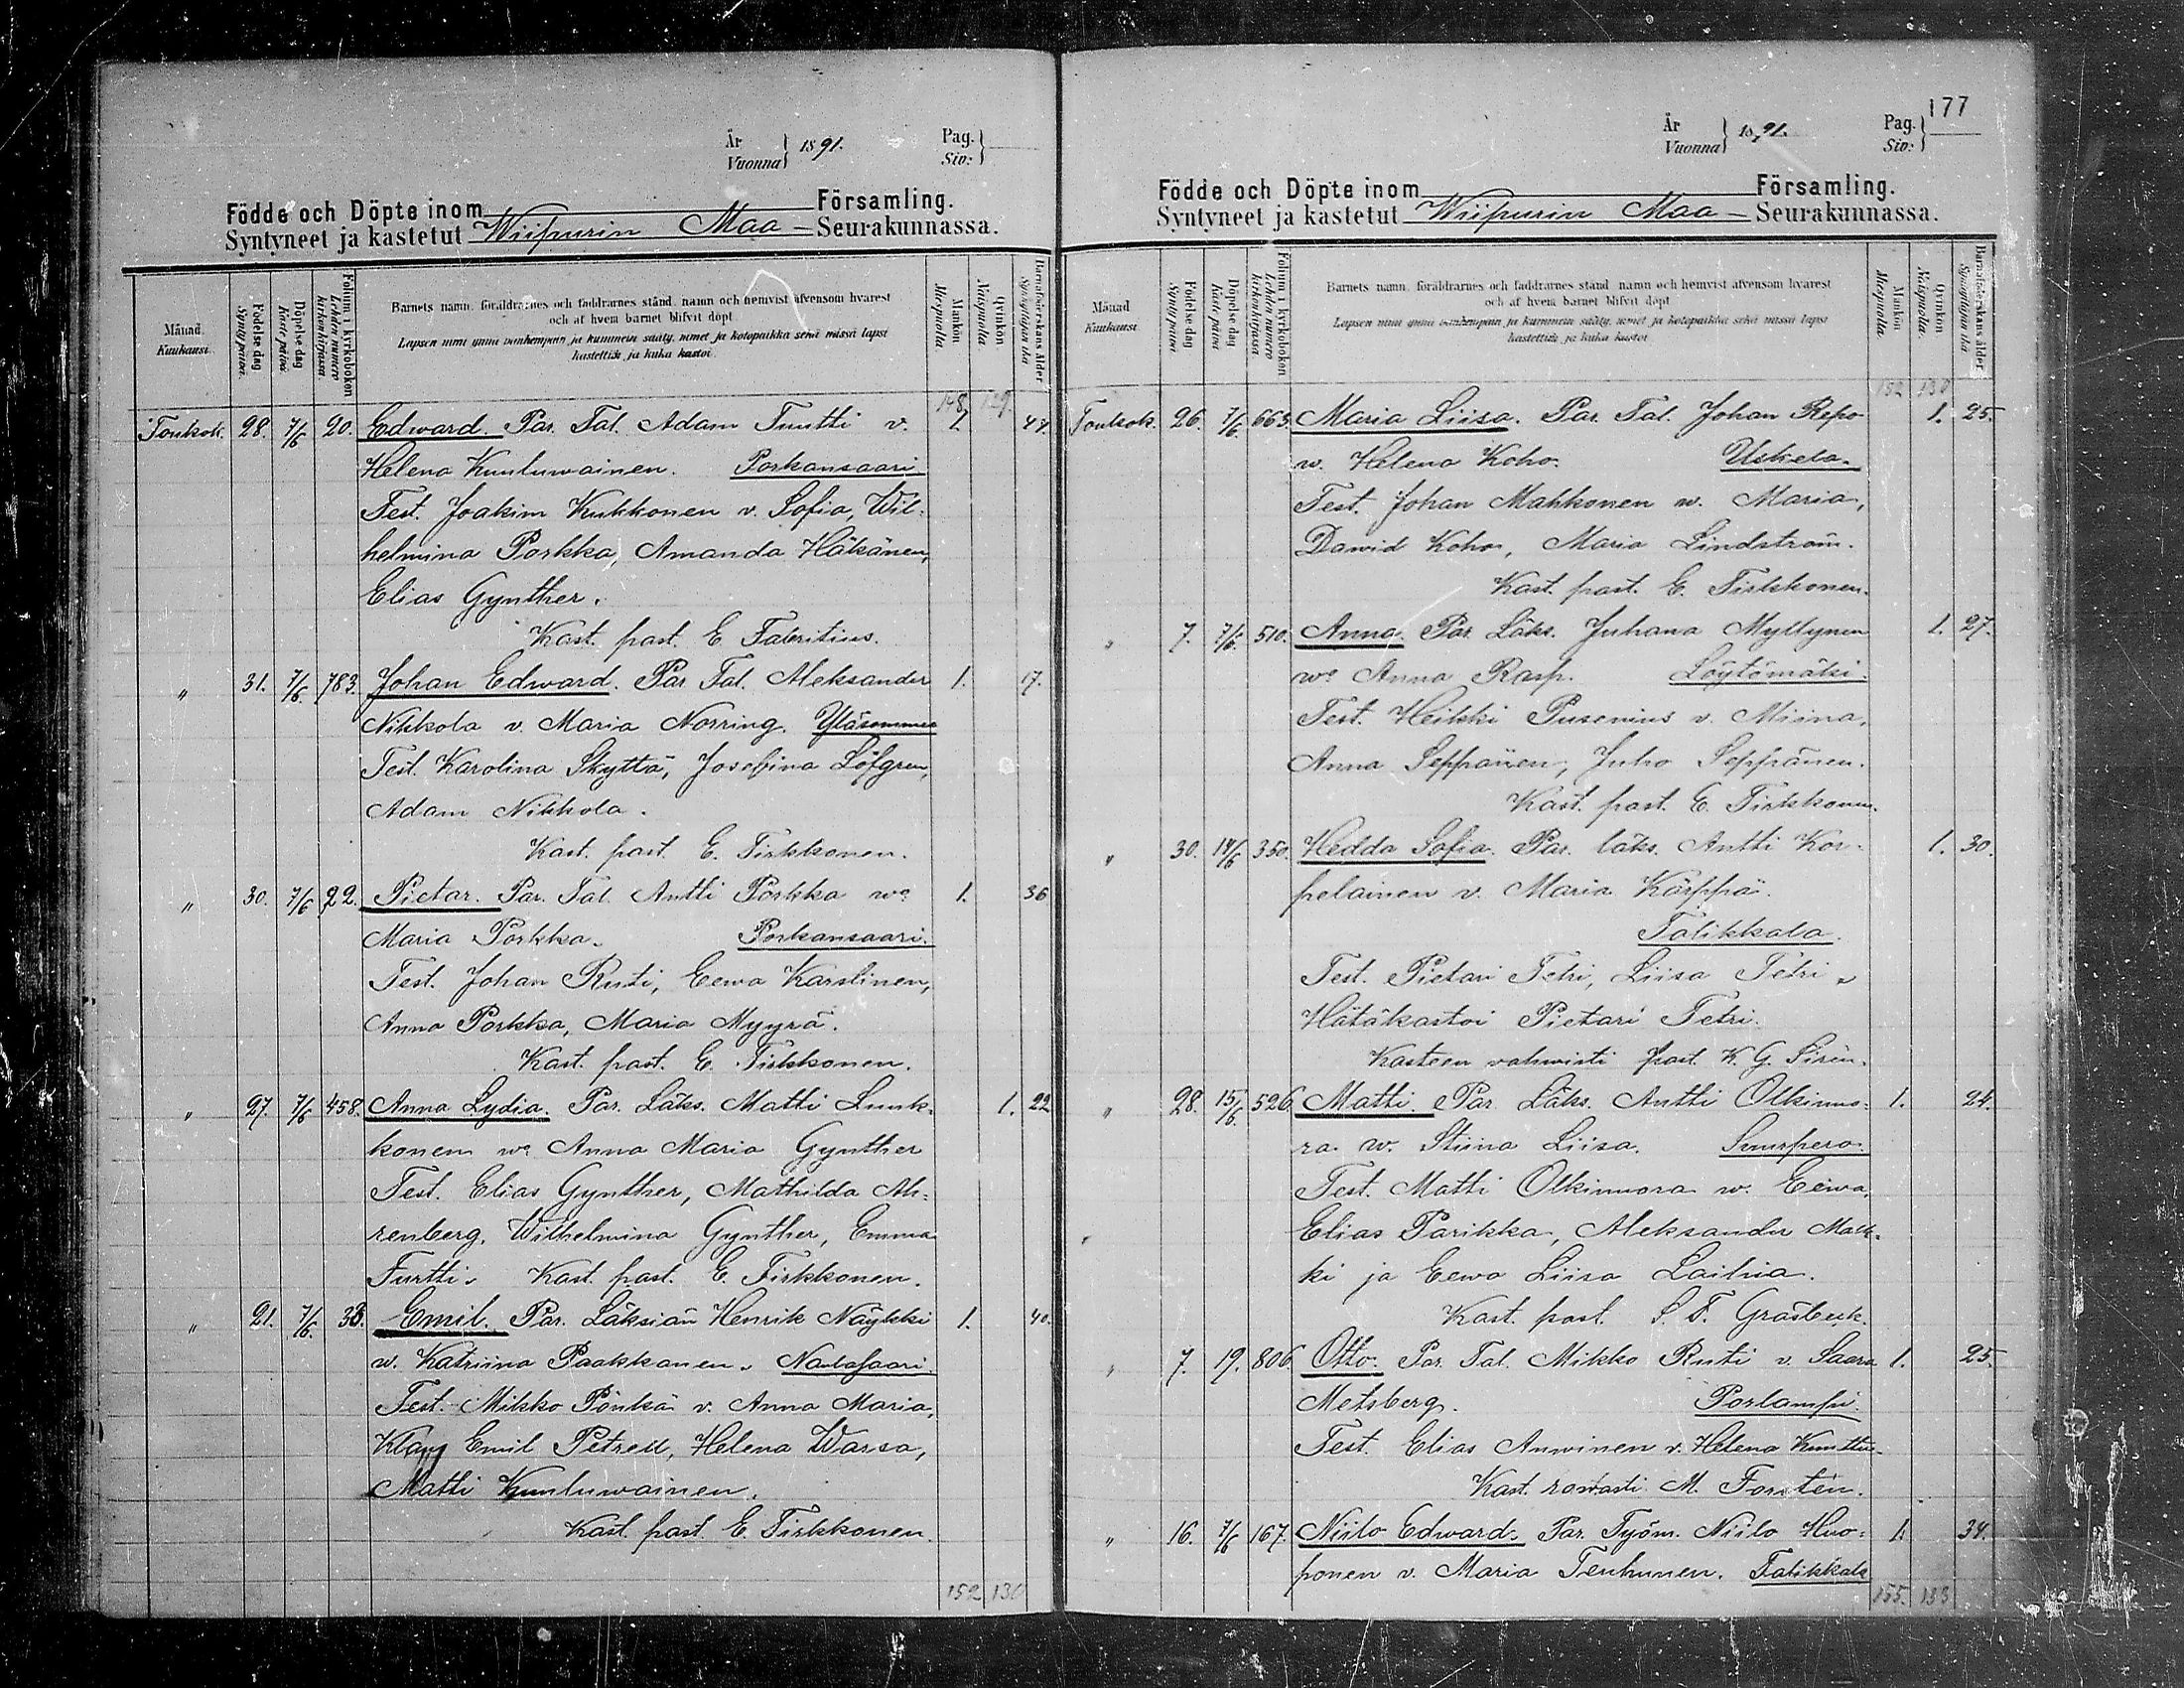 År
Vuonna } 1891.
Pag.
Siv: }
Födde och Döpte inom Församling.
Syntyneet ja kastetut Wiipurin Maa - Seurakunnassa.
Månad.
Kuukausi.
Födelse dag
Synty päivä.
Döpelse dag
Kaste päivä.
Folium i kyrkoboken
Lehden numero kirkonkirjassa.
Barnets namn, föräldrarnes och faddrarnes stånd, namn och hemvist äfvensom hvarest
och af hvem barnet blifvit döpt.
Lapsen nimi ynnä vanhempain ja kummein sääty, nimet ja kotopaikka sekä missä lapsi
kastettiin ja kuka kastoi.
Mankön
Miespuolia
Qvinkön
Naispuolia
Barnaföderskans ålder
Synnyttäjän ikä
148 129.
Toukok. 28. 7/6 20. Edward. Par. Tal. Adam Tuutti v. 1. 44.
Helena Kuuluwainen. Porkansaari
Test. Joakim Kukkonen v. Sofia, Wil-
helmina Porkka, Amanda Häkänen,
Elias Gynther.
Kast. past. E. Fabritius.
" 31. 7/6. 783. Johan Edward. Par Tal. Aleksander 1. 17.
Nikkola v. Maria Norring. Yläsommee
Test. Karolina Skyttä, Josefina Löfgren,
Adam Nikkola.
Kast. past. E. Tirkkonen.
" 30. 7/6 22. Pietar. Par. Tal. Antti Porkka w: 1. 36
Maria Porkka. Porkansaari.
Test. Johan Ruti, Eewa Karslinen,
Anna Porkka, Maria Myyrä.
Kast. past. E. Tirkkonen.
" 27. 7/6 458. Anna Lydia. Par. Läks. Matti Luuk- 1. 22
konen w: Anna Maria Gynther
Test. Elias Gynther, Mathilda Ah-
renberg, Wilhelmina Gynther, Emma
Furtti. Kast. past. E. Tirkkonen.
" 21. 7/6. 33. Emil. Par. Läksiän Henrik Näykki 1. 40.
w. Katriina Paakkanen. Naulasaari.
Test. Mikko Pönkä v. Anna Maria,
Emil Petrell, Helena Warsa,
Matti Kuuluwainen.
Kast. past. E. Tirkkonen.
152 130
177
År
Vuonna } 1891.
Pag.
Siv: }
Födde och Döpte inom Församling.
Syntyneet ja kastetut Wiipurin Maa - Seurakunnassa.
Månad
Kuukausi
Födelse dag
Synty päivä.
Döpelse dag
Kaste päivä
Folium i kyrkoboken
Lehden numero kirkonkirjassa
Barnets namn, föräldrarnes och faddrarnes stånd, namn och hemvist äfvensom hvarest
och af hvem barnet blifvit döpt
Lapsen nimi ynnä vanhempain ja kummein sääty, nimet ja kotopaikka sekä missä lapsi
kastettiin ja kuka kastoi
Mankön
Miespuolia
Qvinkön
Naispuolia.
Barnaföderskans ålder
Synnyttäjän ikä
152 130
Toukok. 26. 7/6. 663. Maria Liisa. Par. Tal. Johan Repo 1. 25.
w. Helena Koho. Uskela.
Test. Johan Mahkonen w. Maria,
Dawid Koho, Maria Lindström.
Kast. past. E. Tirkkonen.
" 7. 7/6. 510. Anna. Par. Läks. Juhana Myllynen 1. 27.
w: Anna Rasp. Löytömäki.
Test. Heikki Pusenius v. Miina,
Anna Seppänen, Juho Seppänen.
Kast. past. E. Tirkkonen.
" 30. 14/6 350. Hedda Sofia. Par. läks. Antti Kor- 1. 30.
pelainen v. Maria Kärppä.
Talikkala.
Test. Pietari Tetri, Liisa Tetri.
Hätäkastoi Pietari Tetri.
Kasteen vahwisti past. K. G. Sirén.
" 28. 15/6. 526. Matti. Par. Läks. Antti Olkinuo- 1. 24.
ra w. Stiina Liisa. Suurpero.
Test. Matti Olkinuora w. Eewa,
Elias Parikka, Aleksander Mak-
ki ja Eewa Liisa Lailia.
Kast. past. S. F. Gräsbeck.
" 7. 19. 806. Otto. Par. Tal. Mikko Ruti v. Saara 1. 25.
Metsberg. Porlampi.
Test. Elias Anwinen v. Helena Kunttu.
Kast. rovasti M. Forstén.
" 16. 7/6 167. Niilo Edward. Par. Työm. Niilo Huo- 1. 34.
ponen v. Maria Tenhunen. Talikkala
155. 133